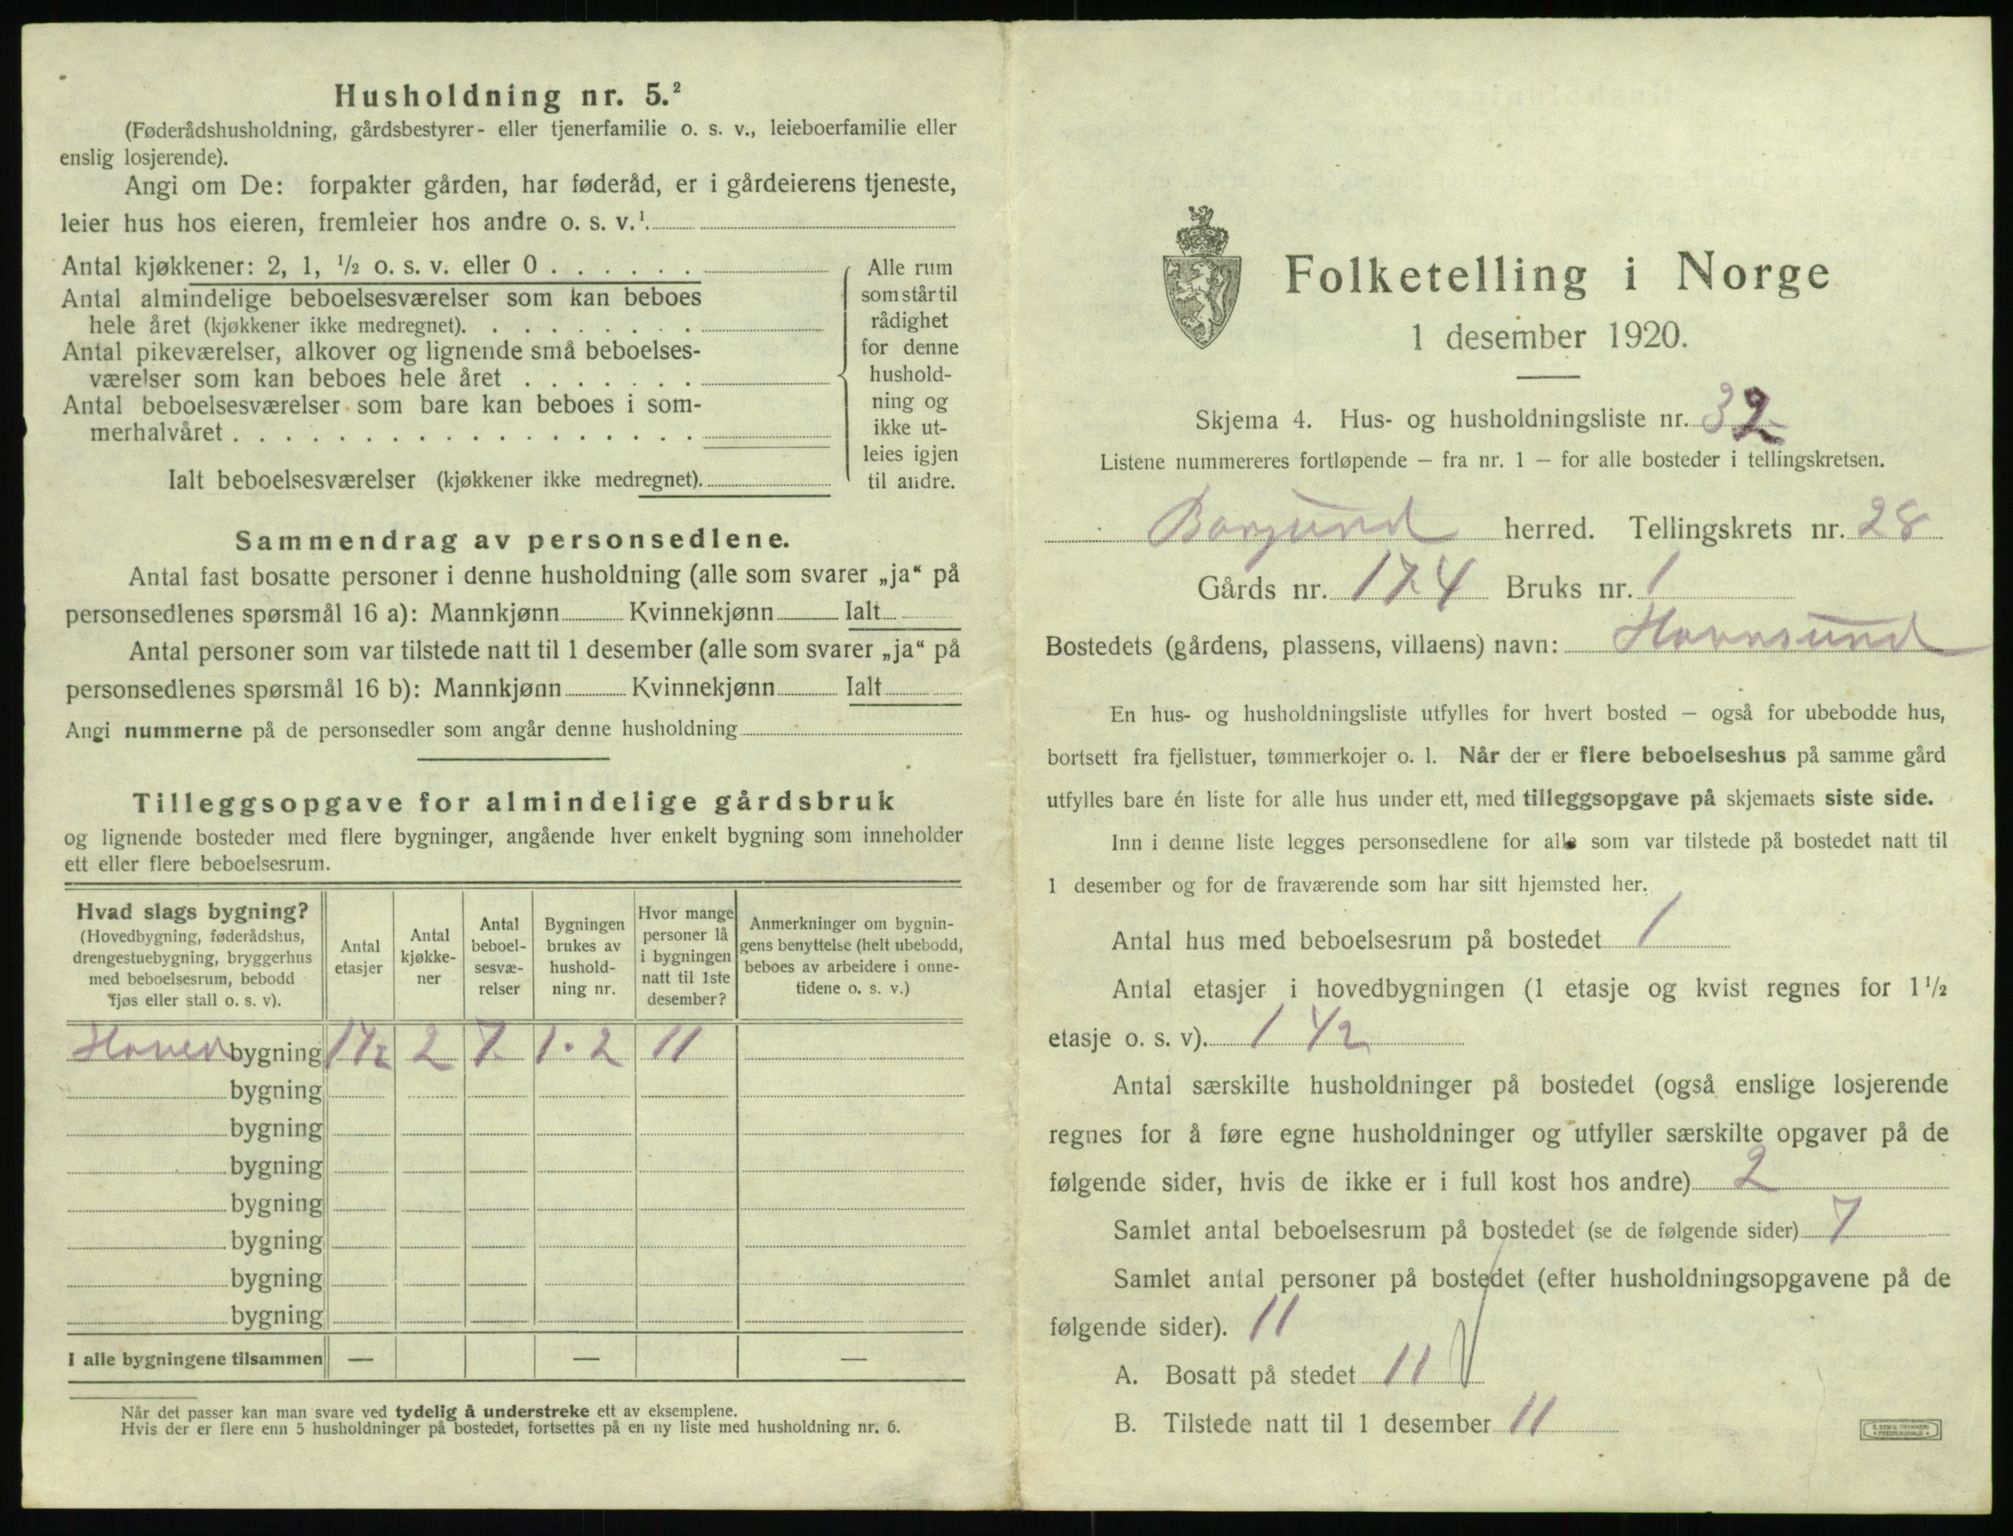 Husholdning nr. 5.²
(Føderådshusholdning, gårdsbestyrer- eller tjenerfamilie o. s. v., leieboerfamilie eller
enslig losjerende).
Angi om De: forpakter gården, har føderåd, er i gårdeierens tjeneste,
leier hus hos eieren, fremleier hos andre o. s. v.¹.
Antal kjøkkener: 2, 1, ½ o. s. v. eller 0 . . . . . .
Antal almindelige beboelsesværelser som kan beboes
hele året (kjøkkener ikke medregnet). . . . . . . . .
Antal pikeværelser, alkover og lignende små beboelses-
værelser som kan beboes hele året . . . . . . .
Antal beboelsesværelser som bare kan beboes i som-
merhalvåret . . . . . . . . . . . . . . . . . .
Ialt beboelsesværelser (kjøkkener ikke medregnet).
Alle rum
som står til
rådighet
for denne
hushold-
ning og
ikke ut-
leies igjen
til andre.
Sammendrag av personsedlene.
Antal fast bosatte personer i denne husholdning (alle som svarer „ja“ på
personsedlenes spørsmål 16 a): Mannkjønn Kvinnekjønn Ialt
Antal personer som var tilstede natt til 1 desember (alle som svarer „ja“ på
personsedlenes spørsmål 16 b): Mannkjønn Kvinnekjønn Ialt
Angi nummerne på de personsedler som angår denne husholdning
Tilleggsopgave for almindelige gårdsbruk
og lignende bosteder med flere bygninger, angående hver enkelt bygning som inneholder
ett eller flere beboelsesrum.
Hvad slags bygning?
(Hovedbygning, føderådshus,
drengestuebygning, bryggerhus
med beboelsesrum, bebodd
fjøs eller stall o. s. v).
Antal
etasjer
Antal
kjøkke-
ner
Antal
beboel-
sesvæ-
relser
Bygningen
brukes av
hushold-
ning nr.
Hvor mange
personer lå
i bygningen
natt til 1ste
desember?
Anmerkninger om bygnin-
gens benyttelse (helt ubebodd,
beboes av arbeidere i onne-
tidene o. s. v.)
Hoved bygning 1½ 2 7 1.2 11
bygning
bygning
bygning
bygning
bygning
bygning
bygning
I alle bygningene tilsammen — — —
Når det passer kan man svare ved tydelig å understreke ett av eksemplene.
Hvis der er flere enn 5 husholdninger på bostedet, fortsettes på en ny liste med husholdning nr. 6.
Folketelling i Norge
1 desember 1920.
Skjema 4. Hus- og husholdningsliste nr. 32
Listene nummereres fortløpende — fra nr. 1 — for alle bosteder i tellingskretsen.
Borgund herred. Tellingskrets nr. 28
Gårds nr. 174 Bruks nr. 1
Bostedets (gårdens, plassens, villaens) navn: Havnsund
En hus- og husholdningsliste utfylles for hvert bosted — også for ubebodde hus,
bortsett fra fjellstuer, tømmerkojer o. l. Når der er flere beboelseshus på samme gård
utfylles bare én liste for alle hus under ett, med tilleggsopgave på skjemaets siste side.
Inn i denne liste legges personsedlene for alle som var tilstede på bostedet natt til
1 desember og for de fraværende som har sitt hjemsted her.
Antal hus med beboelsesrum på bostedet 1
Antal etasjer i hovedbygningen (1 etasje og kvist regnes for 1½
etasje o. s. v). 1 ½
Antal særskilte husholdninger på bostedet (også enslige losjerende
regnes for å føre egne husholdninger og utfyller særskilte opgaver på de
følgende sider, hvis de ikke er i full kost hos andre) 2
Samlet antal beboelsesrum på bostedet (se de følgende sider) 7
Samlet antal personer på bostedet (efter husholdningsopgavene på de
følgende sider). 11
A. Bosatt på stedet 11
B. Tilstede natt til 1 desember 11